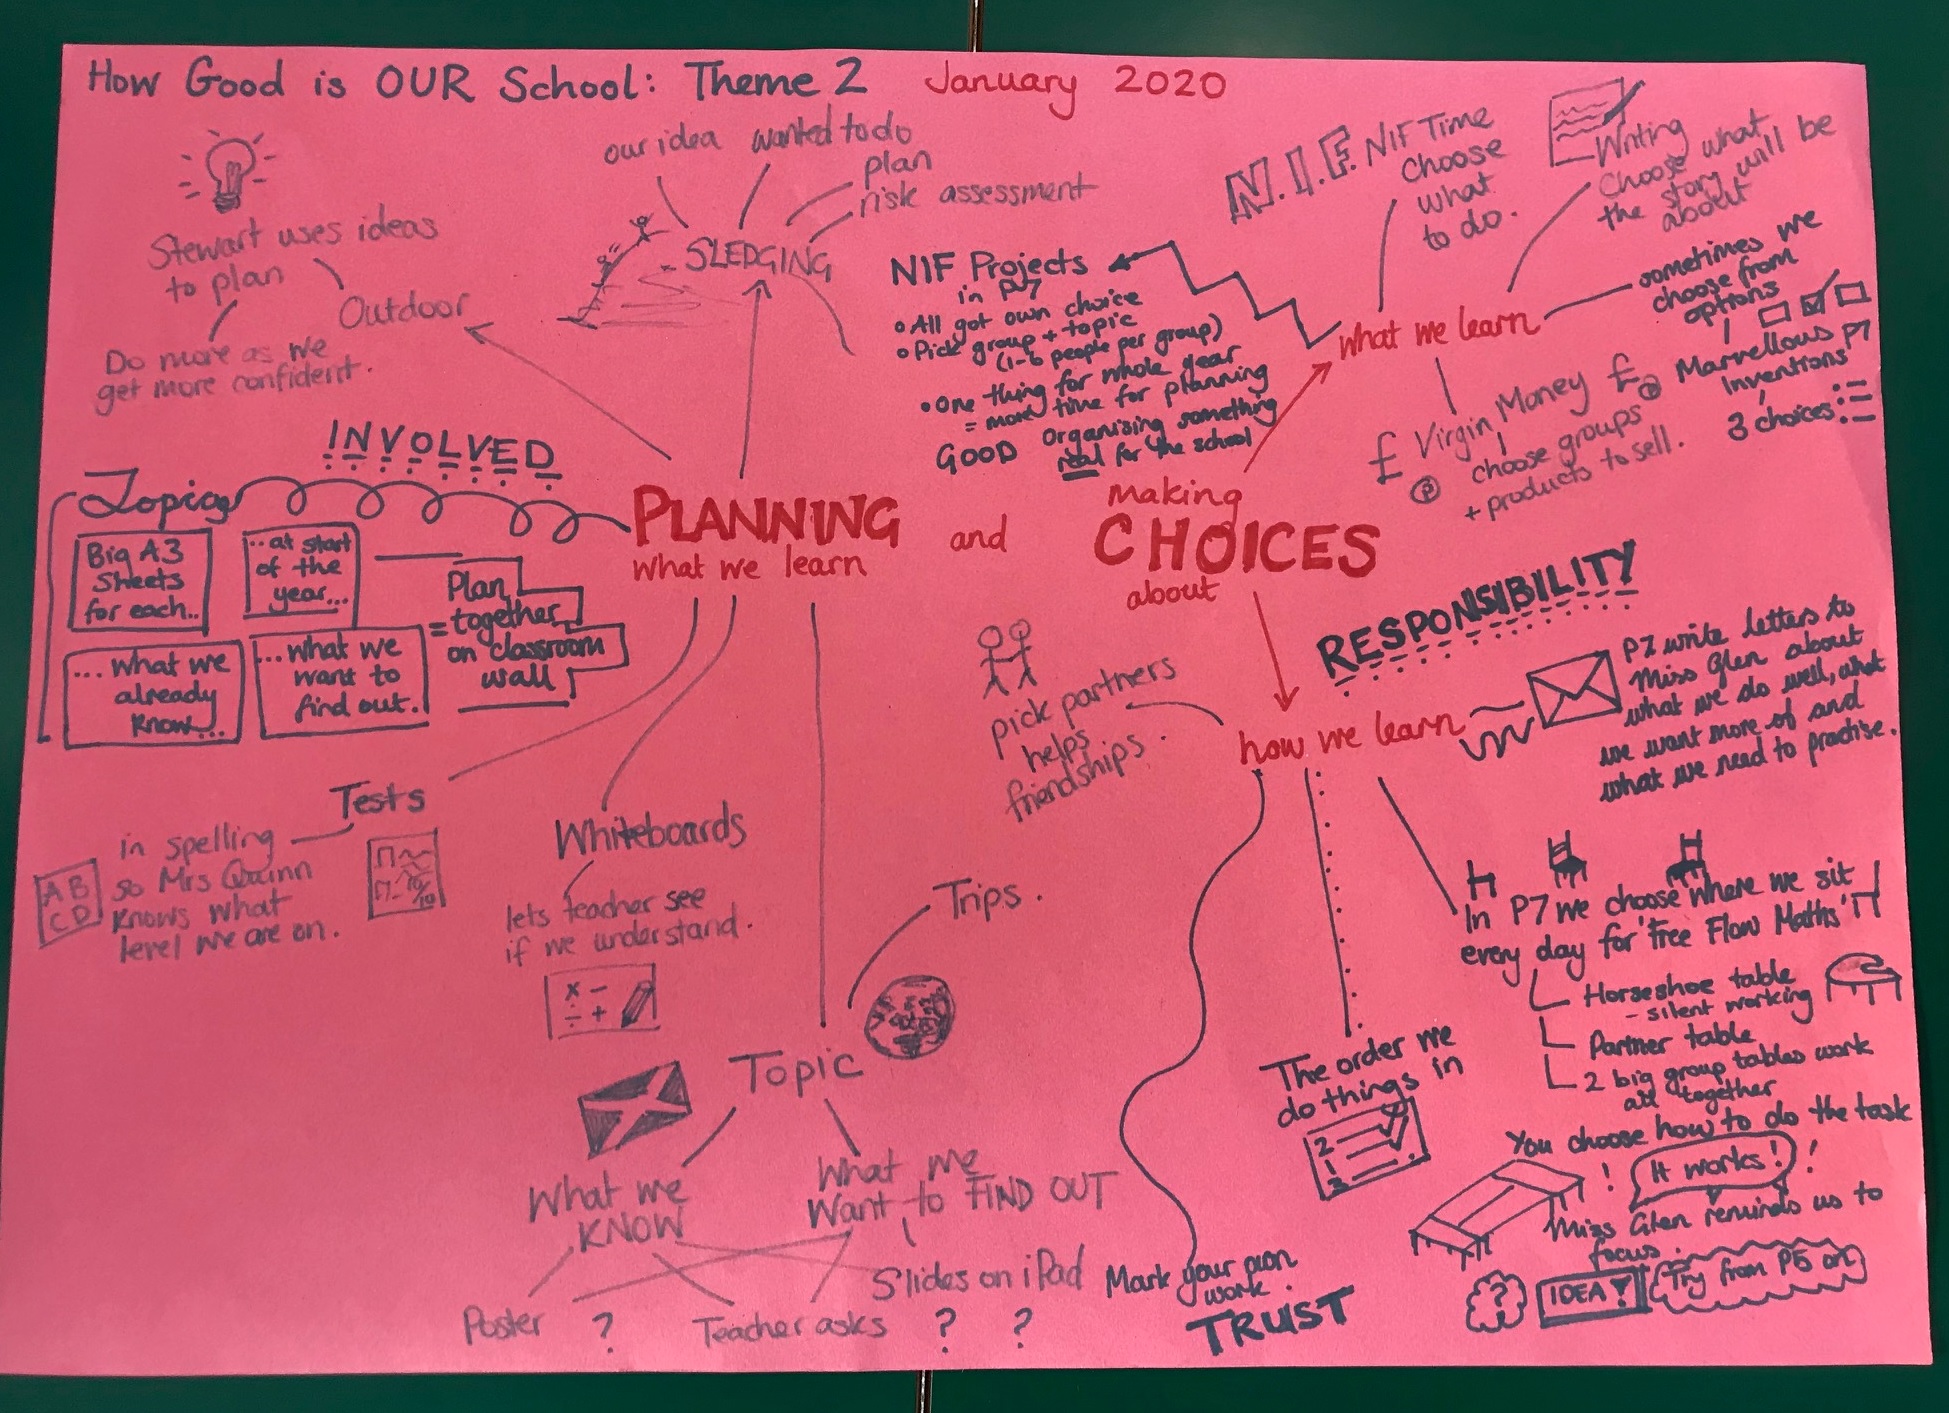 How Good is OUR School: Theme 2 January 2020
our idea
wanted to do
plan
risk assessment
SLEDGING
Stewart uses ideas
to plan
Outdoor
Do more as we
get more confident.
INVOLVED
Topics
Big A3
Sheets
for each..
...at start
of the
year...
...what we
already
know...
...what we
want to
find out.
Plan
= together
on classroom
wall
PLANNING
what we learn
and
making
CHOICES
about
NIF Projects
in P7
• All got own choice
• Pick group + topic
(1-6 people per group)
• One thing for whole year
= more time for planning
GOOD Organising something
real for the school
N.I.F. NIF Time
Choose
what
to do.
Writing
Choose what
the story will be
about
what we learn
sometimes we
choose from
options
Marvellous P7
Inventions
3 choices:
£ Virgin Money £
P
P
choose groups
+ products to sell.
RESPONSIBILITY
P7 write letters to
Miss Glen about
what we do well, what
we want more of and
what we need to practise.
how we learn
pick partners
helps
friendships.
Tests
in spelling
so Mrs Quinn
knows what
level we are on.
A B
C D
10/10
Whiteboards
lets teacher see
if we understand.
x -
÷ +
Trips.
Topic
What we
KNOW
What we
Want to FIND OUT
Slides on iPad
Poster ? Teacher asks ? ?
In P7 we choose where we sit
every day for 'Free Flow Maths'
Horseshoe table
- silent working
Partner table
2 big group tables work
all together
You choose how to do the task
! It works! !
Miss Glen reminds us to
focus.
? IDEA! Try from P5 on
The order we
do things in
2
1
3
Mark your own
work.
TRUST